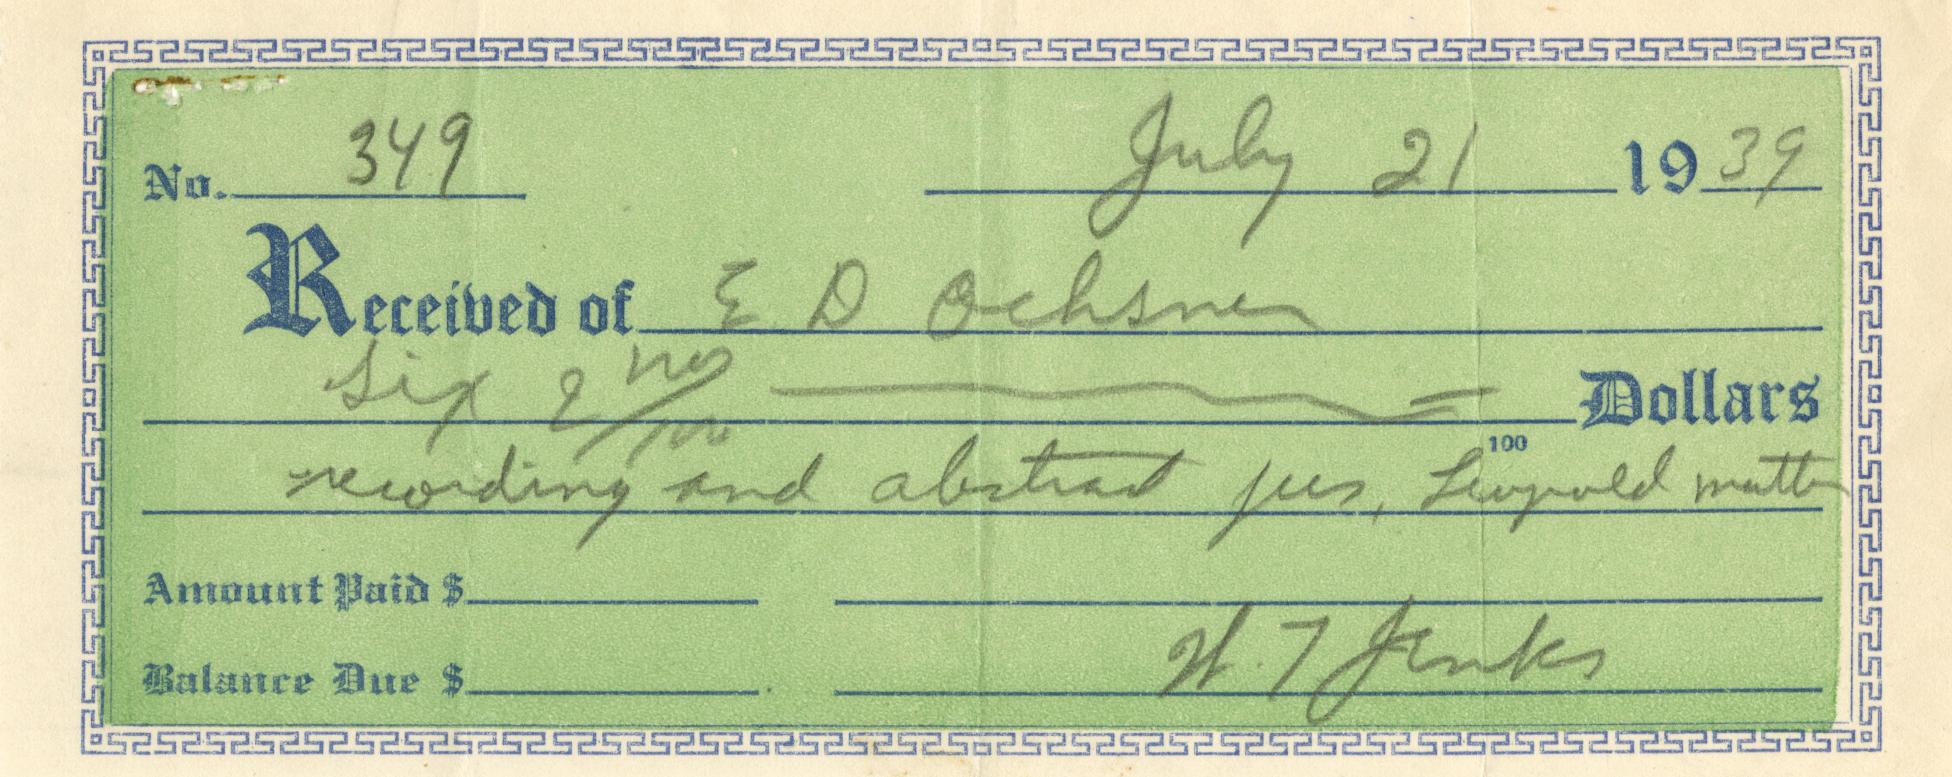 No. 349 July 21 1939
Received of E D Ochsner
Six & no/100 Dollars
100
recording and abstract fees, Leopold matter
Amount Paid $
Balance Due $ H. T Jenks